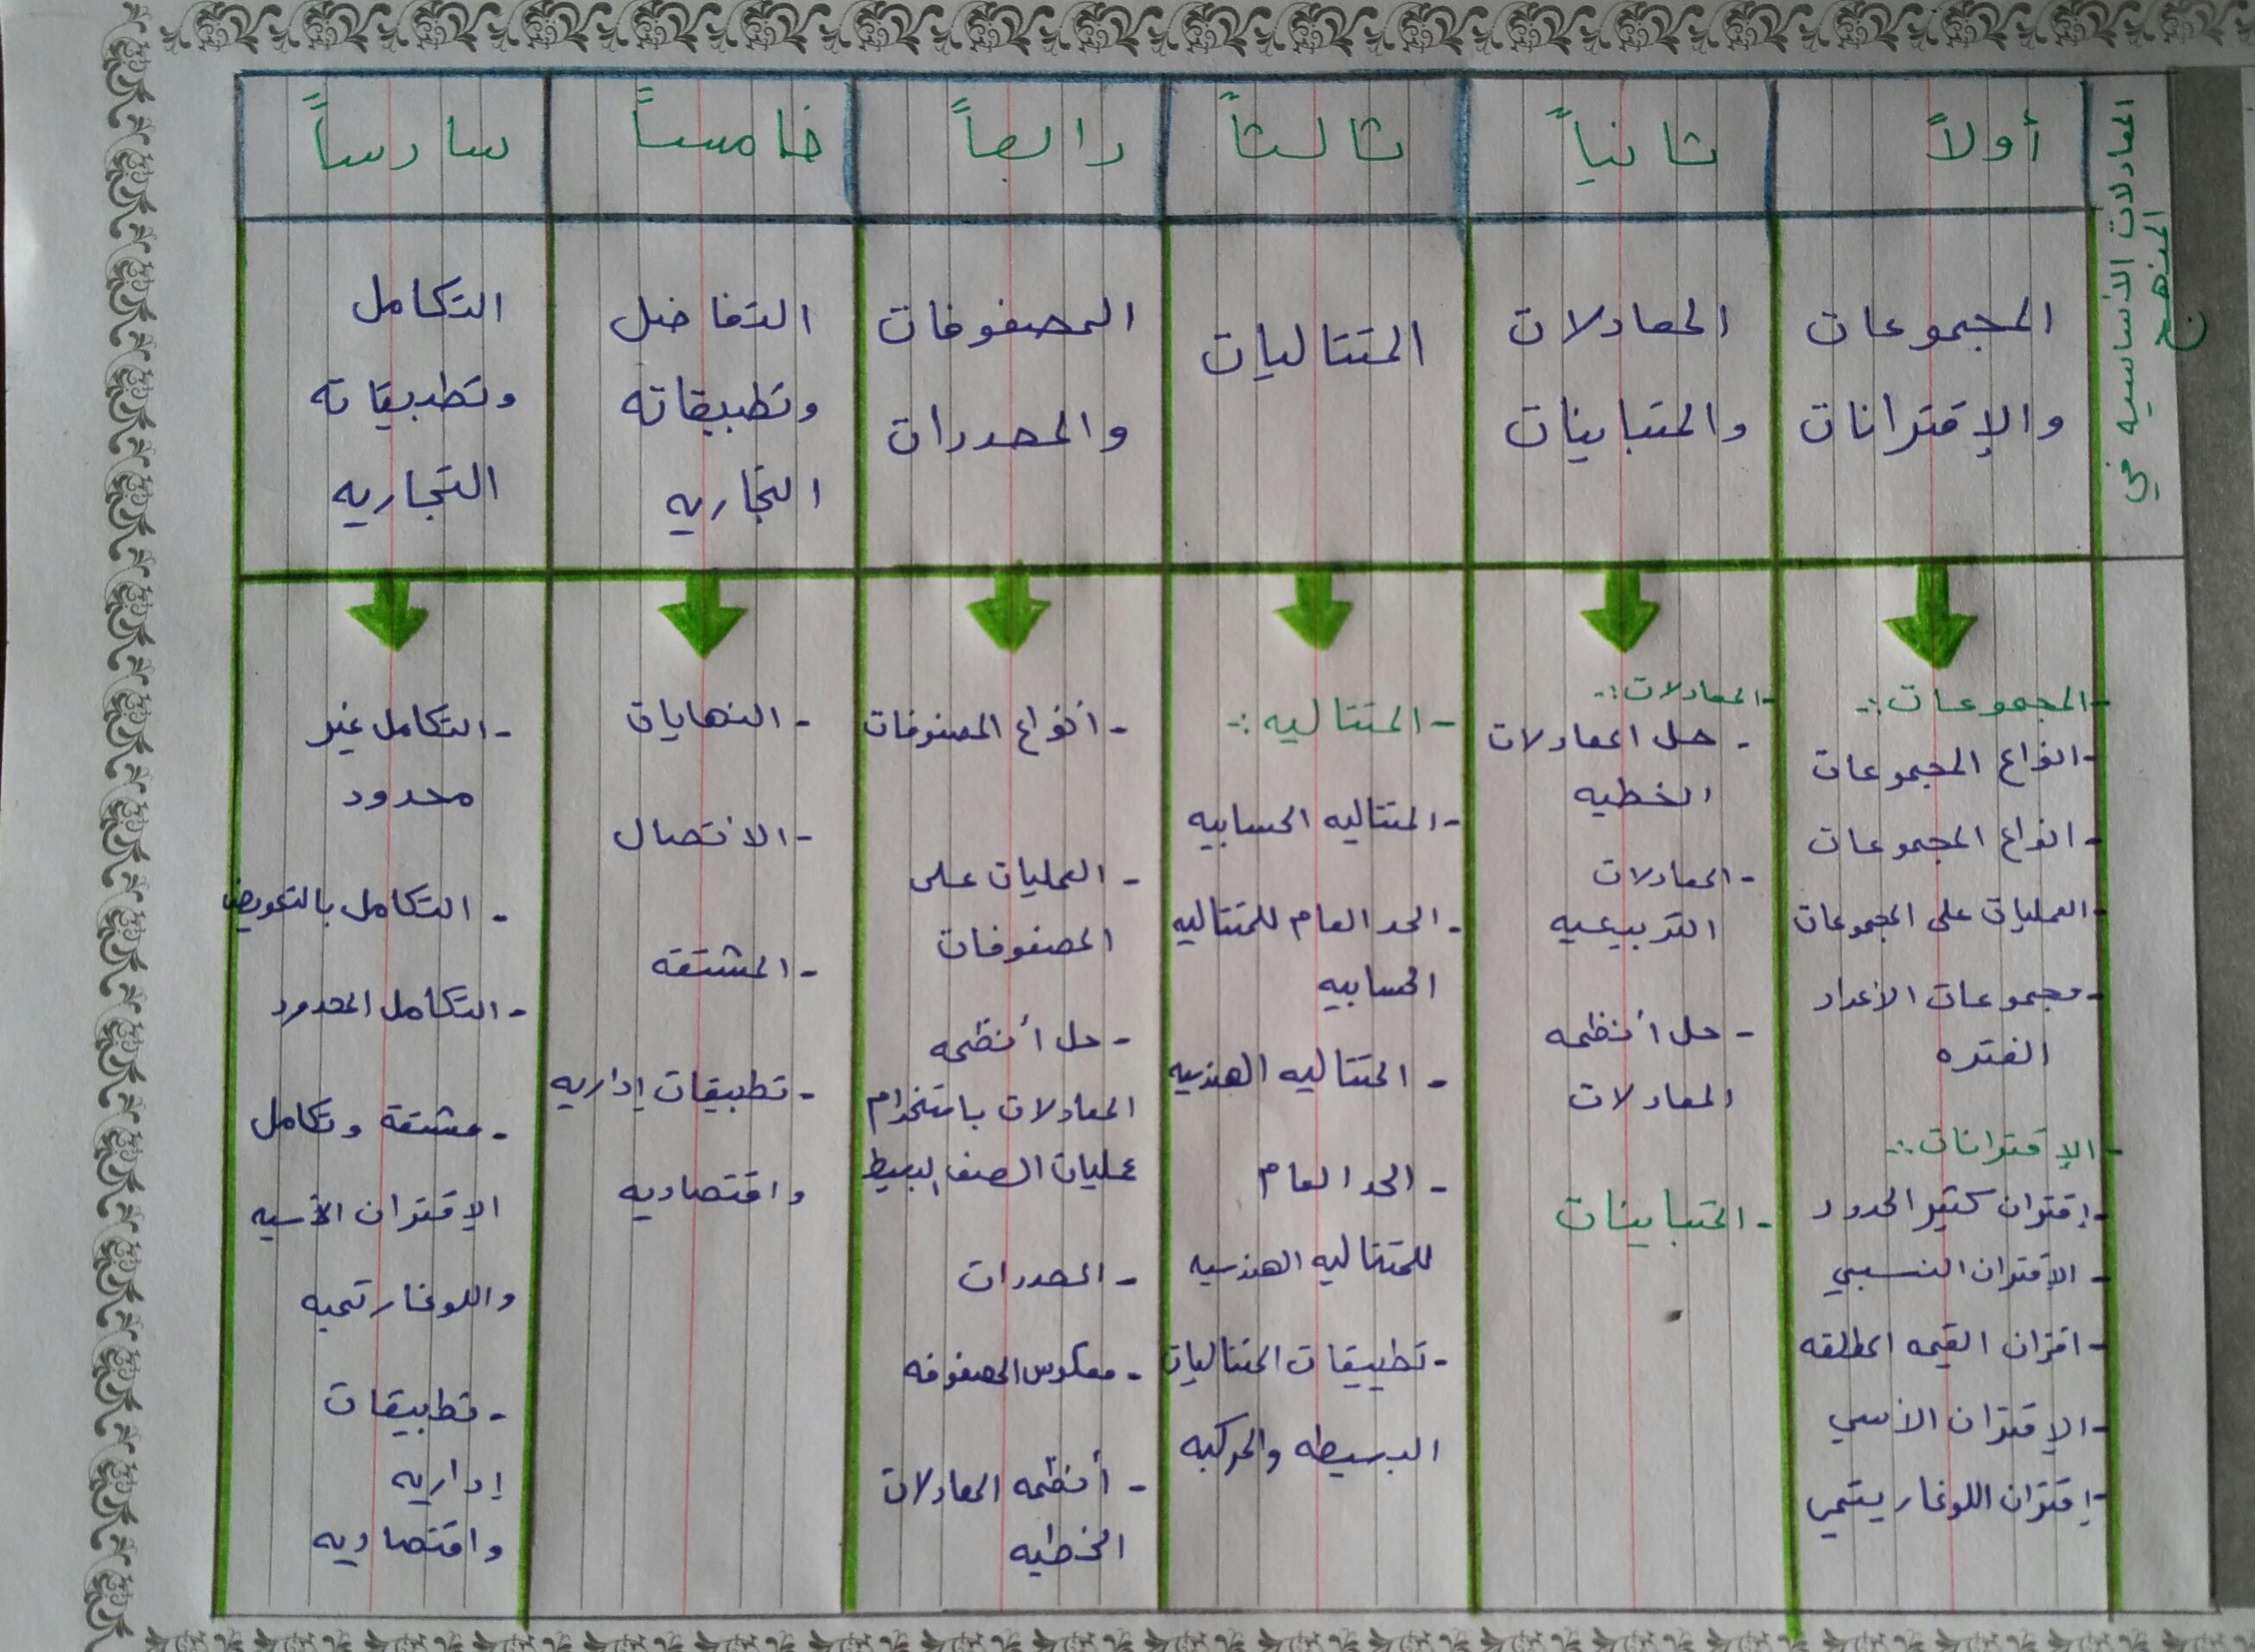 المعادلات الأساسيه في
المنهج
أولاً
ثانياً
ثالثاً
رابعاً
خامساً
سادساً
المجموعات
والإقترانات
المعادلات
والمتباينات
المتتاليات
المصفوفات
والمحددات
التفاضل
وتطبيقاته
التجاريه
التكامل
وتطبيقاته
التجاريه
- المجموعات :-
- انواع المجموعات
- انواع المجموعات
- العمليات على المجموعات
- مجموعات الأعداد
الفتره
- الإقترانات :-
- إقتران كثير الحدود
- الإقتران النسبي
- اقتران القيمه المطلقه
- الإقتران الأسي
- إقتران اللوغاريتمي
- المعادلات :-
- حل المعادلات
الخطيه
- المعادلات
التربيعيه
- حل أنظمه
المعادلات
- المتباينات
- المتتاليه :-
- المتتاليه الحسابيه
- الحد العام للمتتاليه
الحسابيه
- المتتاليه الهندسيه
- الحد العام
للمتتاليه الهندسيه
- تطبيقات المتتاليات
البسيطه والمركبه
- أنواع المصفوفات
- العمليات على
المصفوفات
- حل أنظمه
المعادلات باستخدام
عمليات الصف البسيط
- المحددات
- معكوس المصفوفه
- أنظمه المعادلات
الخطيه
- النهايات
- الاتصال
- المشتقه
- تطبيقات إداريه
واقتصاديه
- التكامل غير
محدود
- التكامل بالتعويض
- التكامل المحدود
- مشتقة وتكامل
الإقتران الأسيه
واللوغارتميه
- تطبيقات
إداريه
واقتصاديه